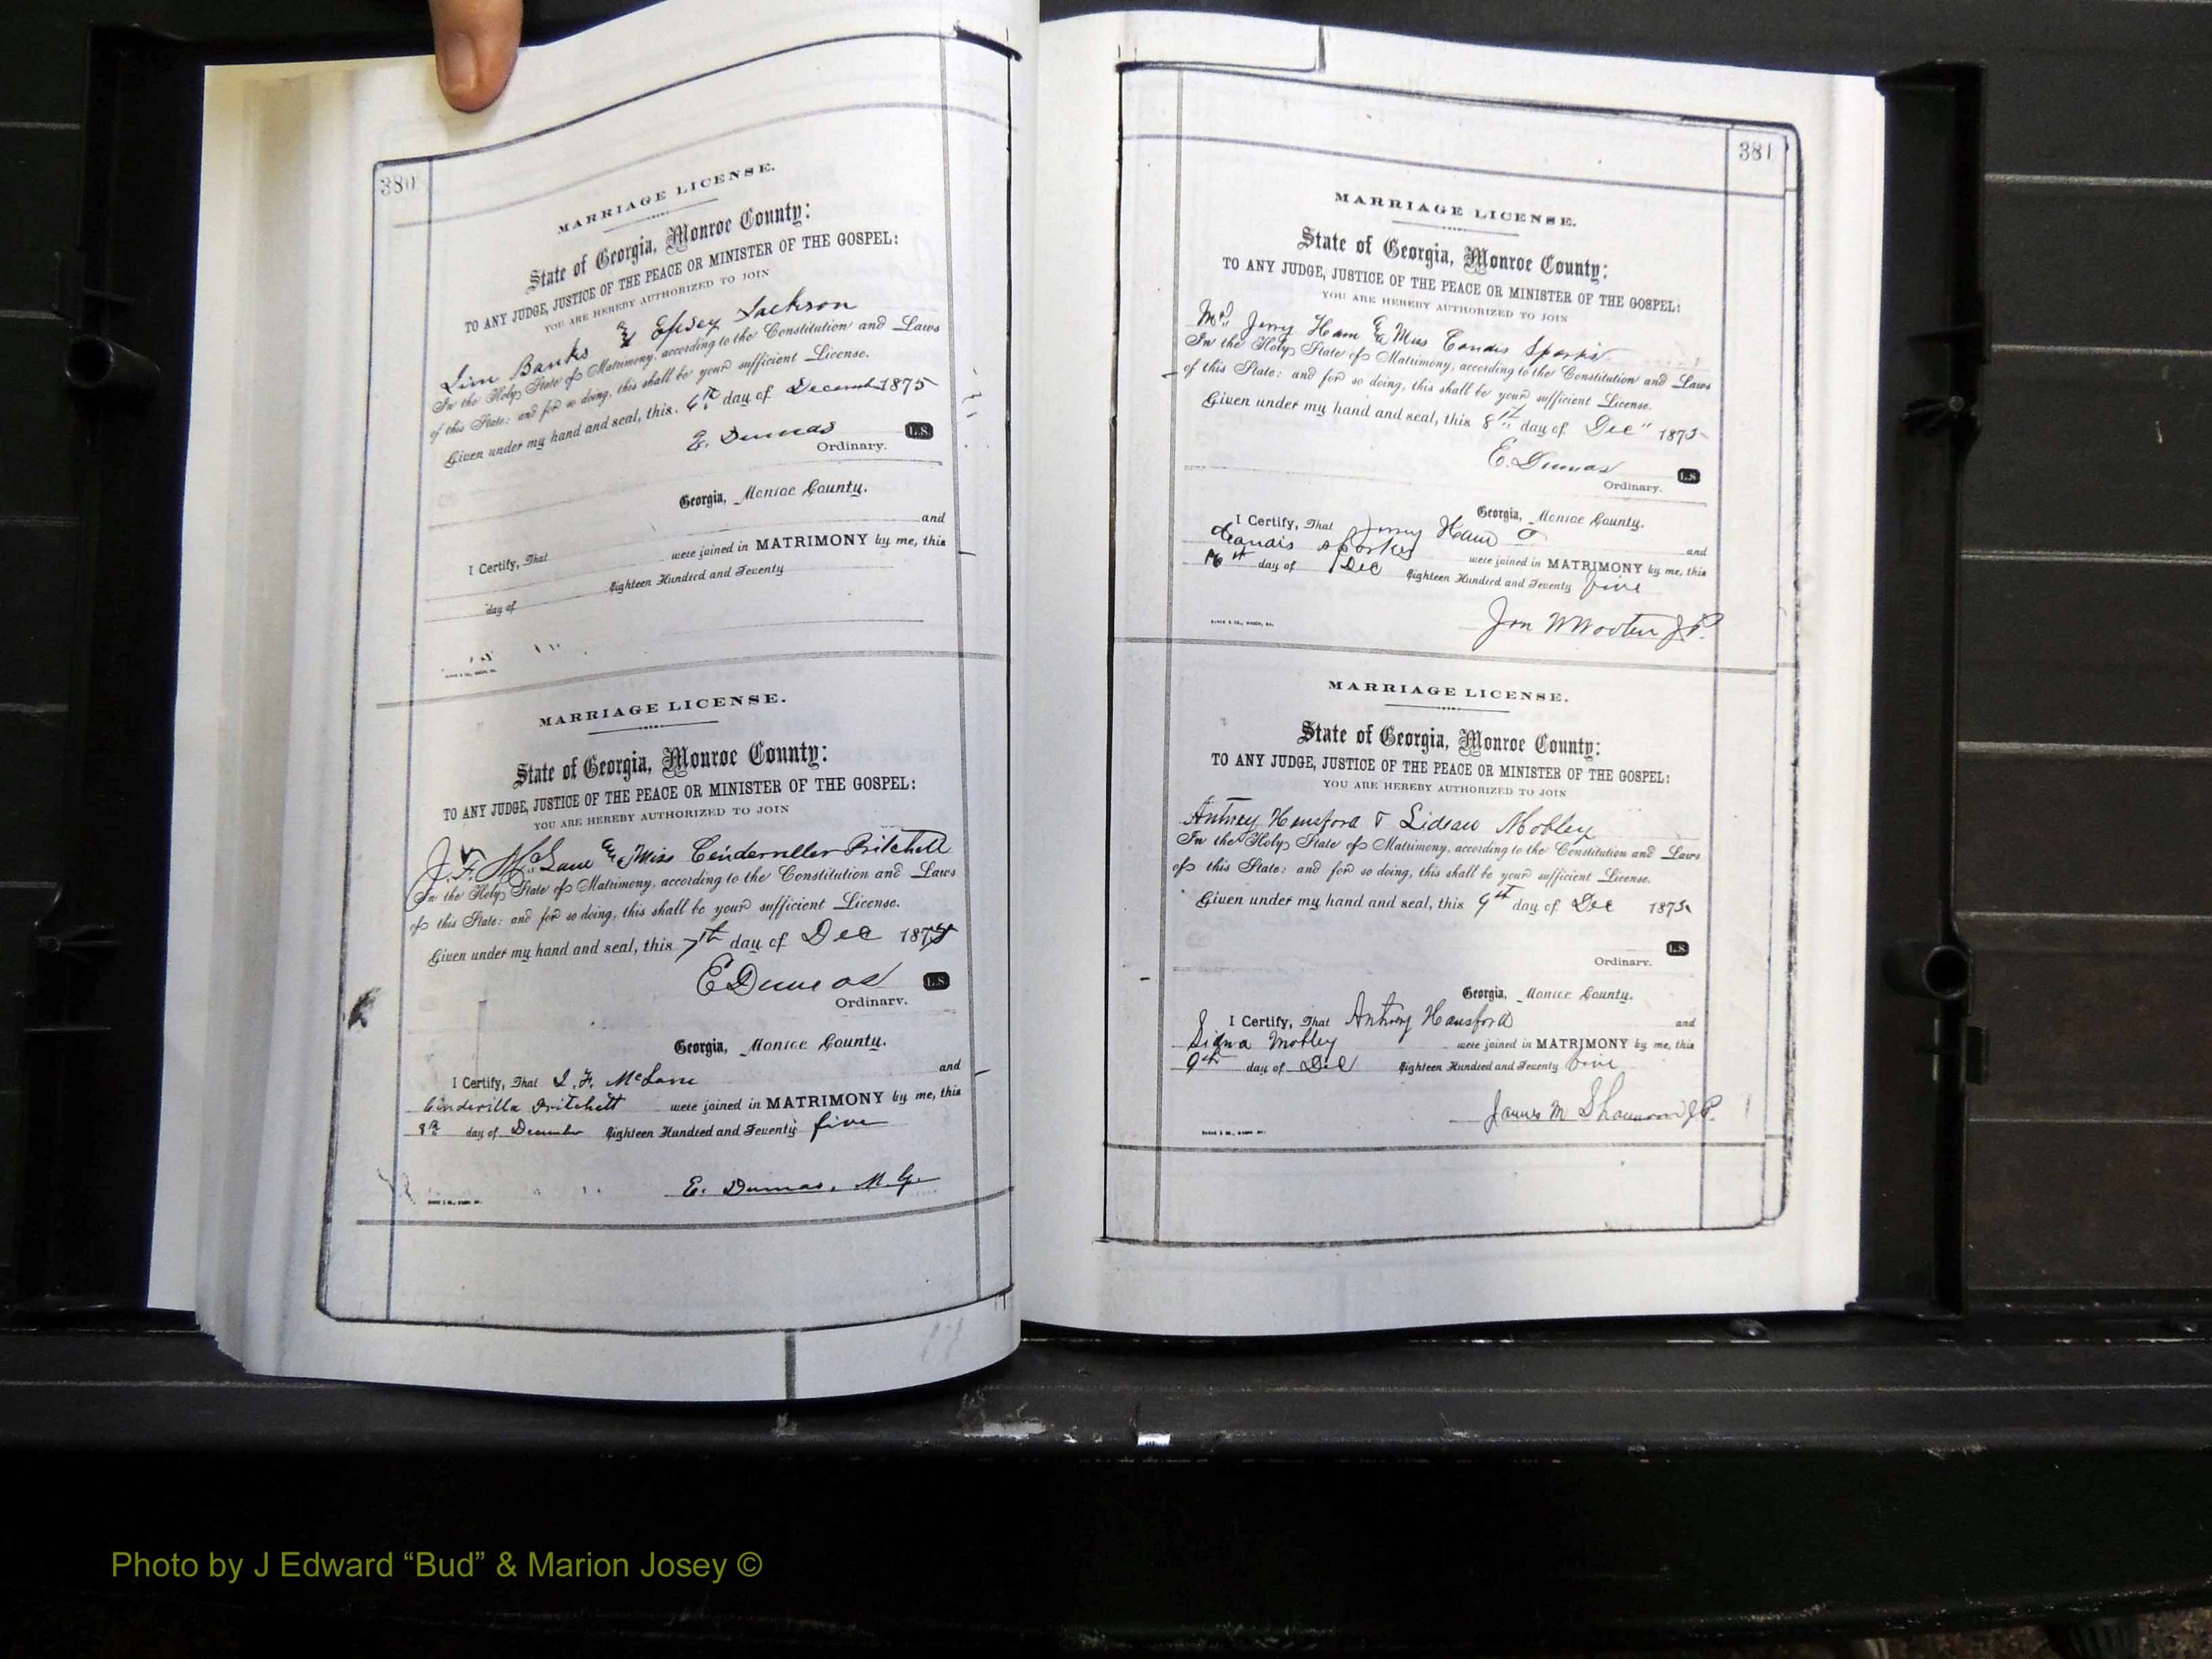 380
MARRIAGE LICENSE.
State of Georgia, Monroe County:
TO ANY JUDGE, JUSTICE OF THE PEACE OR MINISTER OF THE GOSPEL:
YOU ARE HEREBY AUTHORIZED TO JOIN
Jim Banks & Epsey Jackson
In the Holy State of Matrimony, according to the Constitution and Laws
of this State: and for so doing, this shall be your sufficient License.
Given under my hand and seal, this day of December 1875
E. Dumas L.S.
Ordinary.
Georgia, Monroe County.
and
I Certify, That were joined in MATRIMONY by me, this
day of Eighteen Hundred and Seventy
MARRIAGE LICENSE.
State of Georgia, Monroe County:
TO ANY JUDGE, JUSTICE OF THE PEACE OR MINISTER OF THE GOSPEL:
YOU ARE HEREBY AUTHORIZED TO JOIN
J. F. McLane & Miss Cinderviller Pritchett
In the Holy State of Matrimony, according to the Constitution and Laws
of this State: and for so doing, this shall be your sufficient License.
Given under my hand and seal, this 7th day of Dec 1875
E Dumas L.S.
Ordinary.
Georgia, Monroe County.
I Certify, That J. F. McLane and
Cinderilla Pritchett were joined in MATRIMONY by me, this
8th day of December Eighteen Hundred and Seventy five
E. Dumas, M.G.
381
MARRIAGE LICENSE.
State of Georgia, Monroe County:
TO ANY JUDGE, JUSTICE OF THE PEACE OR MINISTER OF THE GOSPEL:
YOU ARE HEREBY AUTHORIZED TO JOIN
Mr. Jerry Ham & Miss Candis Sparks
In the Holy State of Matrimony, according to the Constitution and Laws
of this State: and for so doing, this shall be your sufficient License.
Given under my hand and seal, this 8th day of Dec" 1875
E. Dumas L.S.
Ordinary.
Georgia, Monroe County.
I Certify, That Jerry Ham and
Candis Sparks were joined in MATRIMONY by me, this
day of Dec Eighteen Hundred and Seventy five
Jon W Wooten J.P.
MARRIAGE LICENSE.
State of Georgia, Monroe County:
TO ANY JUDGE, JUSTICE OF THE PEACE OR MINISTER OF THE GOSPEL:
YOU ARE HEREBY AUTHORIZED TO JOIN
Antney Hansford & Mobley
In the Holy State of Matrimony, according to the Constitution and Laws
of this State: and for so doing, this shall be your sufficient License.
Given under my hand and seal, this 9th day of Dec 1875
L.S.
Ordinary.
Georgia, Monroe County.
I Certify, That Antney Hansford and
Signa Mobley were joined in MATRIMONY by me, this
9th day of Dec Eighteen Hundred and Seventy five
James M Shannon J.P.
Photo by J Edward “Bud” & Marion Josey ©